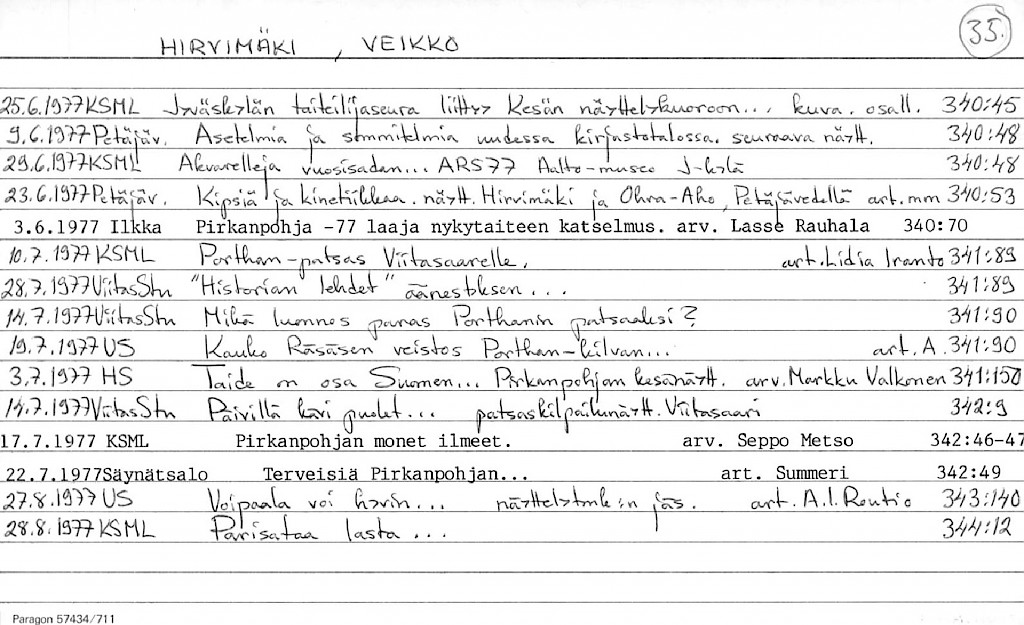 35.
HIRVIMÄKI, VEIKKO
25.6.1977 KSML Jyväskylän taiteilijaseura liittyy Kesän näyttelykuoroon... kuva. osall. 340:45
9.6.1977 Petäjäv. Asetelmia ja sommitelmia uudessa kirjastotalossa. seuraava näytt. 340:48
29.6.1977 KSML Akvarelleja vuosisadan... ARS77 Aalto-museo J-kylä 340:48
23.6.1977 Petäjäv. Kipsiä ja kinetiikkaa. näytt. Hirvimäki ja Ohra-Aho, Petäjävedellä art. mm 340:53
3.6.1977 Ilkka Pirkanpohja -77 laaja nykytaiteen katselmus. arv. Lasse Rauhala 340:70
10.7.1977 KSML Porthan-patsas Viitasaarelle. art. Lidia Iranto 341:89
28.7.1977 ViitasStu "Historian lehdet" äänestyksen... 341:89
14.7.1977 ViitasStu Mikä luonnos paras Porthanin patsaaksi? 341:90
19.7.1977 US Kauko Räsäsen veistos Porthan-kilvan... art. A. 341:90
3.7.1977 HS Taide on osa Suomen... Pirkanpohjan kesänäytt. arv. Markku Valkonen 341:150
14.7.1977 ViitasStu Päivillä kävi puolet... patsaskilpailunäytt. Viitasaari 342:9
17.7.1977 KSML Pirkanpohjan monet ilmeet. arv. Seppo Metso 342:46-47
22.7.1977 Säynätsalo Terveisiä Pirkanpohjan... art. Summeri 342:49
27.8.1977 US Voipaala voi hyvin... näyttelytmk:n jäs. art. A.I. Routio 343:140
28.8.1977 KSML Parisataa lasta... 344:12
Paragon 57434/711